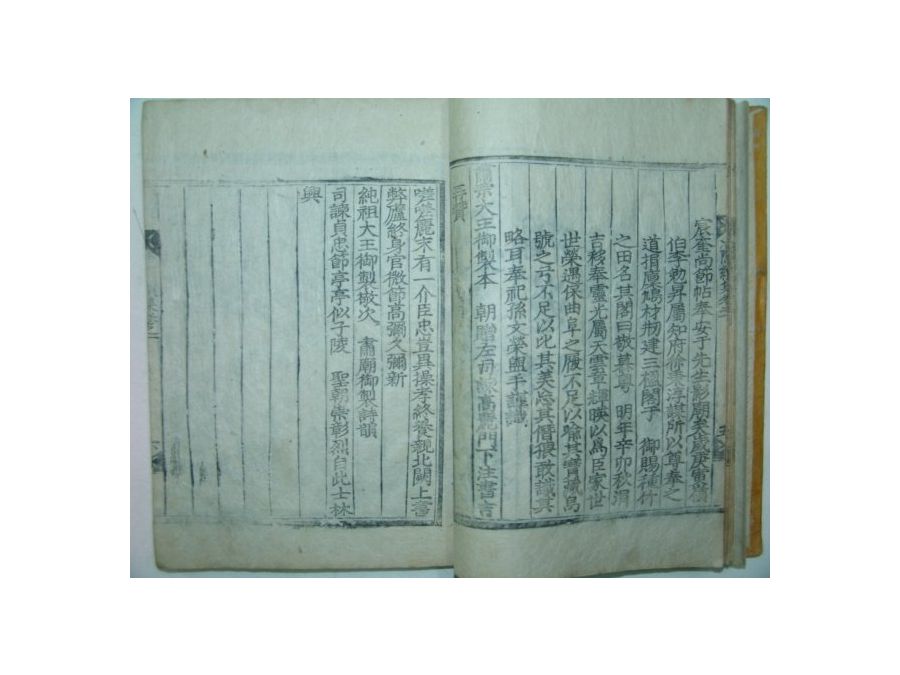 宸奎尚節帖奉安于先生影廟矣歲庚寅嶺
伯李勉昇屬知府修 淳謀所以尊奉之
道捐廩鳩材刱建三楹閣子 御賜種竹
之田名其閣曰敬慕粤 明年辛卯秋涓
吉移奉靈光屬天雲章輝映以爲臣家世
世榮遇保曲阜之履不足以喻其寶攀烏
號之弓不足以比其美忘其僭猥敢識其
略耳奉祀孫文榮盥手謹識
宗大王御製本 朝贈左司諫高麗門下注書吉
再贊
嗟嗟麗末有一介臣忠豈異操孝終養親北闕上書
弊廬終身官微節高彌久彌新
純祖大王御製敬次 肅廟御製詩韻
司諫貞忠節亭亭似子陵 聖朝崇彰烈自此士林
興